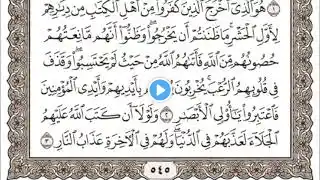 هُوَ ٱلَّذِىٓ أَخْرَجَ ٱلَّذِينَ كَفَرُوا۟ مِنْ أَهْلِ ٱلْكِتَـٰبِ مِن دِيَـٰرِهِمْ
لِأَوَّلِ ٱلْحَشْرِ ۚ مَا ظَنَنتُمْ أَن يَخْرُجُوا۟ ۖ وَظَنُّوٓا۟ أَنَّهُم مَّانِعَتُهُمْ
حُصُونُهُم مِّنَ ٱللَّهِ فَأَتَىٰهُمُ ٱللَّهُ مِنْ حَيْثُ لَمْ يَحْتَسِبُوا۟ ۖ وَقَذَفَ
فِى قُلُوبِهِمُ ٱلرُّعْبَ ۚ يُخْرِبُونَ بِأَيْدِيهِمْ وَأَيْدِى ٱلْمُؤْمِنِينَ
فَٱعْتَبِرُوا۟ يَـٰٓأُو۟لِى ٱلْأَبْصَـٰرِ ٢ وَلَوْلَآ أَن كَتَبَ ٱللَّهُ عَلَيْهِمُ
ٱلْجَلَآءَ لَعَذَّبَهُمْ فِى ٱلدُّنْيَا ۖ وَلَهُمْ فِى ٱلْـَٔاخِرَةِ عَذَابُ ٱلنَّارِ ٣
٥٤٥